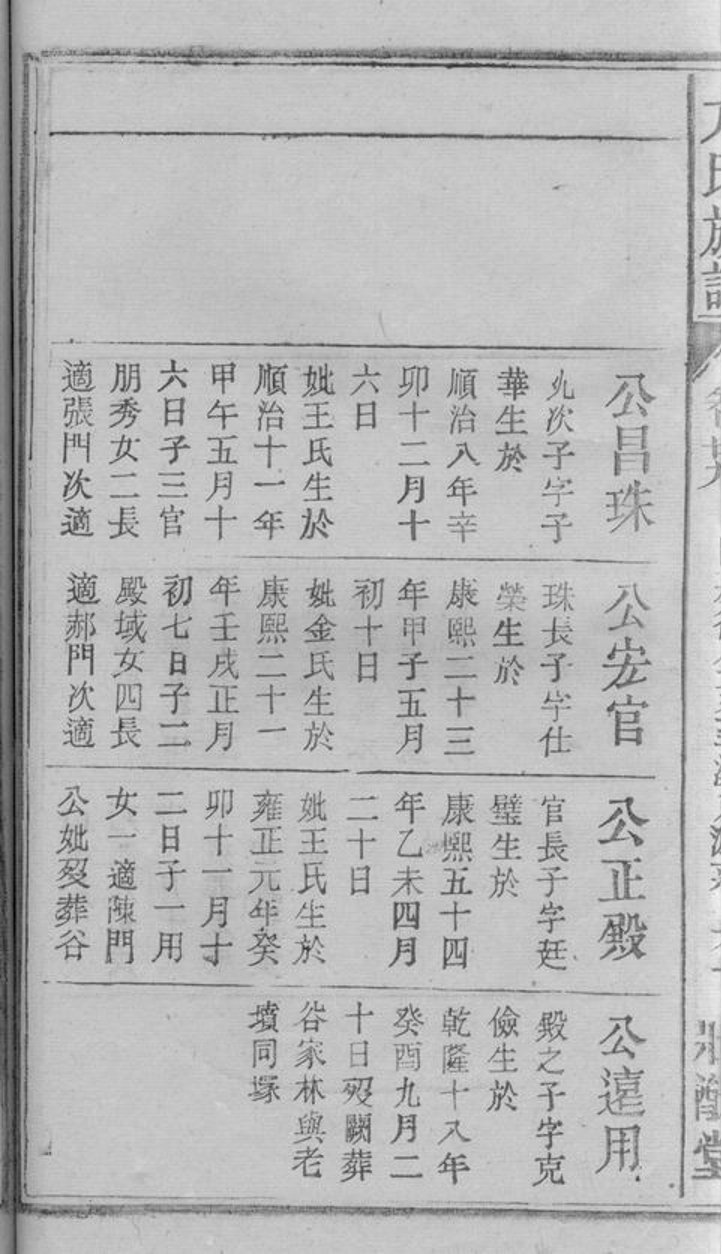 公昌珠
次子字子
華生於
順治八年辛
卯十二月十
六日
妣王氏生於
順治十一年
甲午五月十
六日子三官
朋秀女二長
適張門次適
公宏官
珠長子字仕
榮生於
康熙二十三
年甲子五月
初十日
妣金氏生於
康熙二十一
年壬戌正月
初七日子二
殿域女四長
適郝門次適
公正殿
官長子字廷
璧生於
康熙五十四
年乙未四月
二十日
妣王氏生於
雍正元年癸
卯十一月十
二日子一用
女一適陳門
公妣歿葬谷
公遠用
殿之子字克
儉生於
乾隆十八年
癸酉九月二
十日歿闕葬
谷家林與老
墳同塚